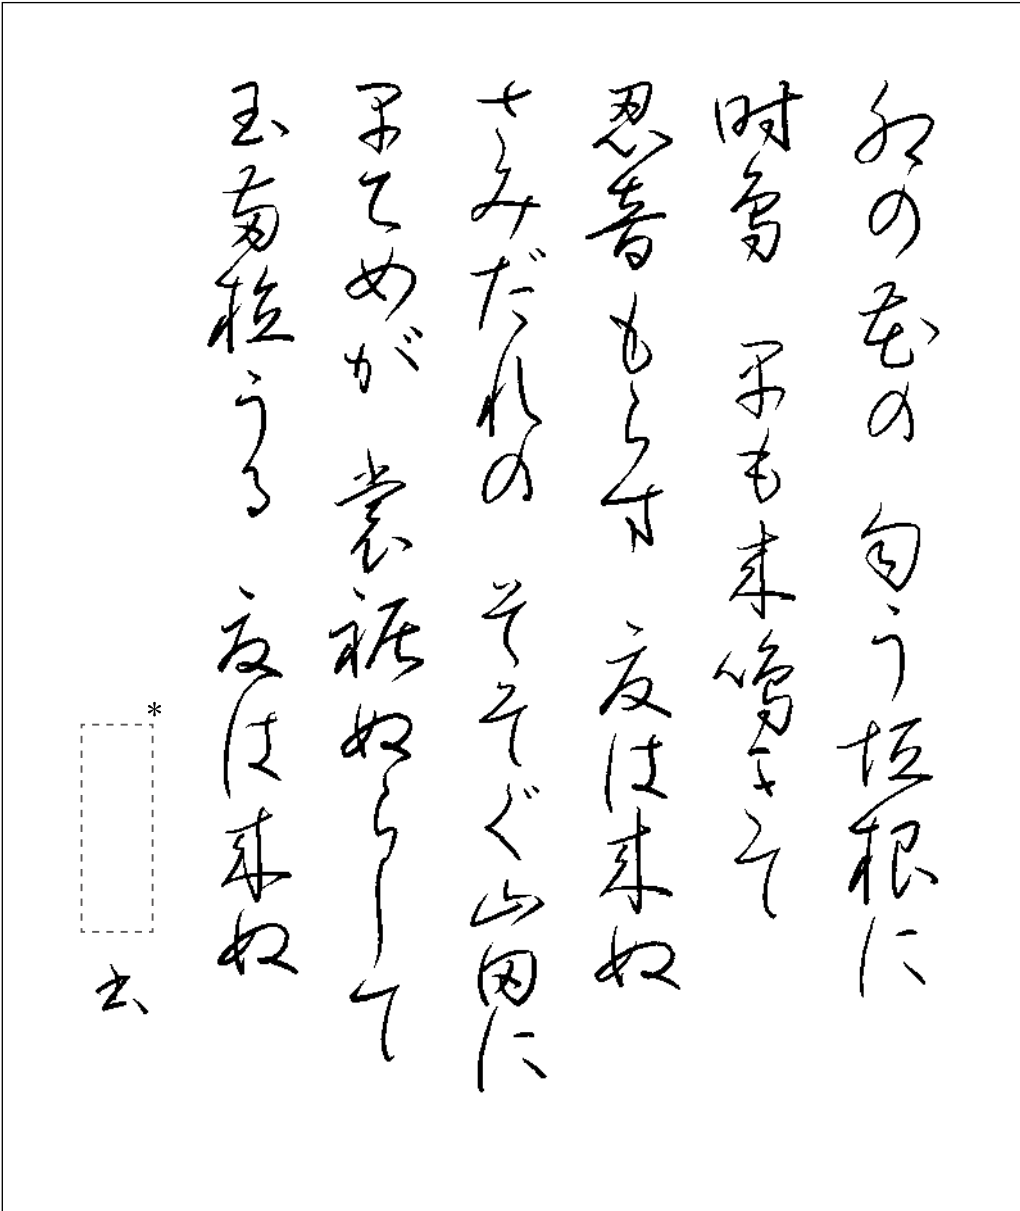 卯の花の 匂う垣根に
時鳥 早も来鳴きて
忍音もらす 夏は来ぬ
さみだれの そそぐ山田に
早乙女が 裳裾ぬらして
玉苗植うる 夏は来ぬ
*
書